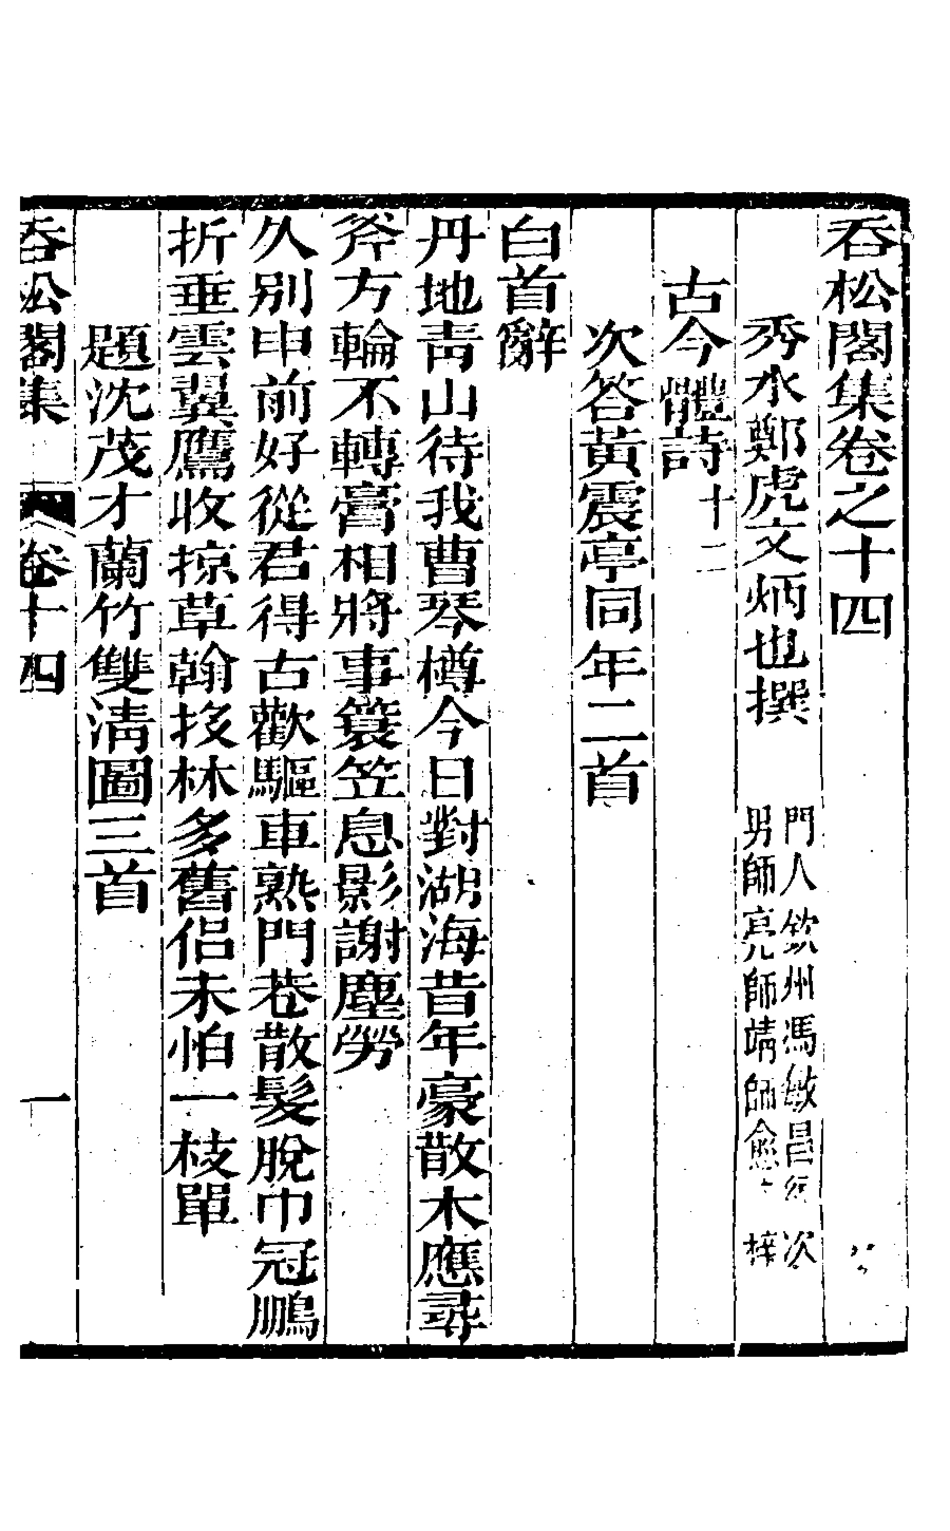 吞松閣集卷之十四
秀水鄭虎文炳也撰
門人欽州馮敏昌 次
男師亮師靖師愈 梓
古今體詩十二
次答黃震亭同年二首
白首辭
丹地靑山待我曹琴樽今日對湖海昔年豪散木應尋
斧方輪不轉膏相將事簑笠息影謝塵勞
久別申前好從君得古歡驅車熟門巷散髮脫巾冠鵬
折垂雲翼鷹收掠草翰投林多舊侶未怕一枝單
題沈茂才蘭竹雙淸圖三首
吞松閣集 卷十四 一